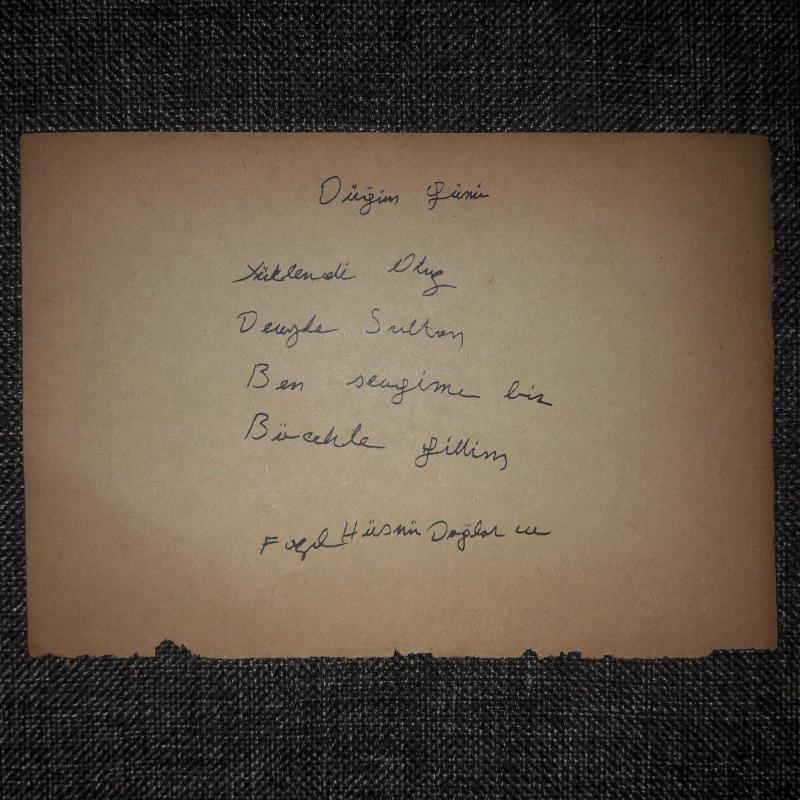 Düğün günü
Yüklendi Otuz
Deveyle Sultan
Ben sevgime bir
Böcekle gittim
Fazıl Hüsnü Dağlarca